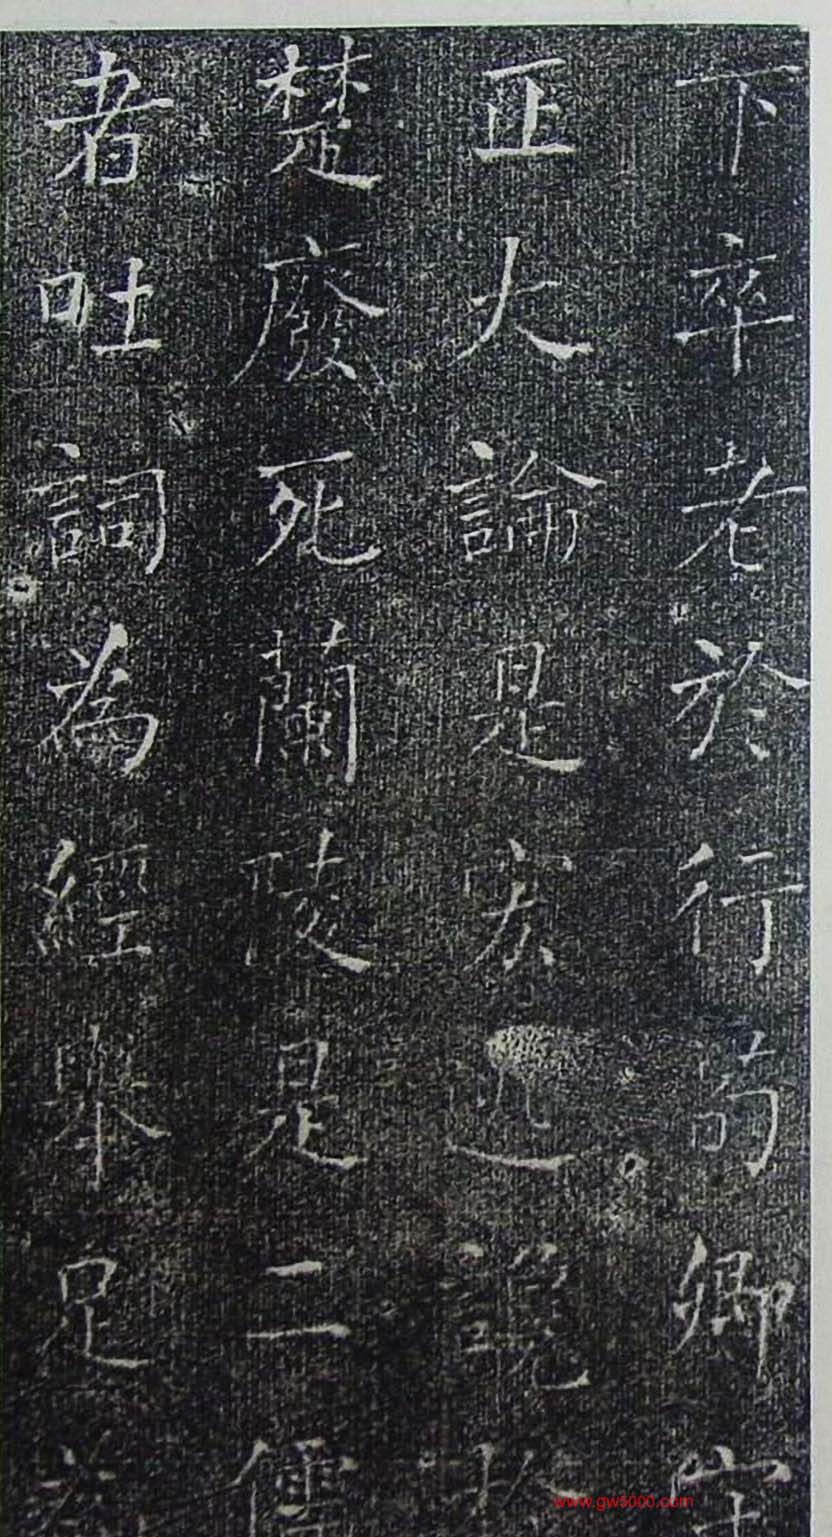 下卒老於行荀卿守
正大論是宏逃讒於
楚廢死蘭陵是二儒
者吐詞為經舉足為
www.gw5000.com